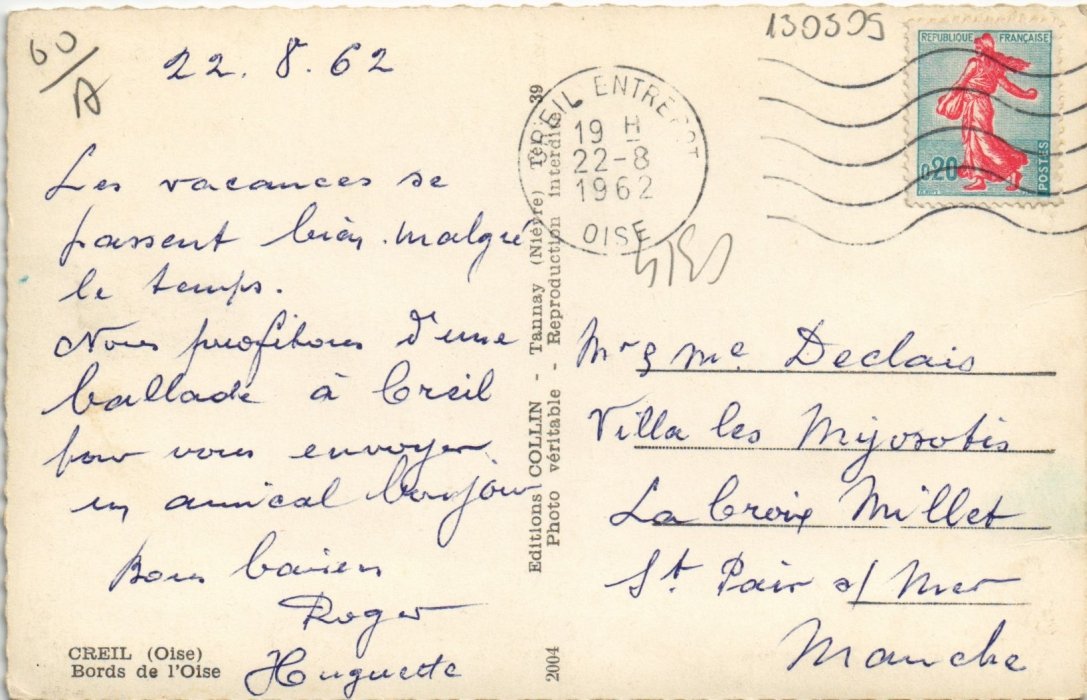 60/A
22.8.62
Les vacances se
passent bien malgré
le temps.
Nous profitons d'une
ballade à Creil
pour vous envoyer
un amical bonjour
Bons baisers
Roger
Huguette
CREIL (Oise)
Bords de l'Oise
Editions COLLIN - Tannay (Nièvre) Tél. 39
Photo véritable - Reproduction interdite
2004
CREIL ENTREPOT
19 H
22-8
1962
OISE
REPUBLIQUE FRANÇAISE
0,20
POSTES
Mr & Me Declais
Villa les Myosotis
La Croix Millet
St. Pair s/ Mer
Manche